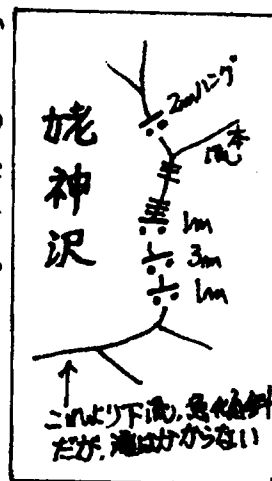 2mハング
姥神沢
1m
3m
1m
これより下流、急傾斜
だが、滝は分からない